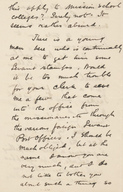 this apply to Mission school
colleges? Surely not. It
seems rather absurd.
There is a young
man here who is continually
at me to get him some
stamps. Would
it be too much trouble
for your clerk to save
me a few that come
into the office from
the missionaries through
the various foreign
Offices. I should be
much obliged, but at the
same
very much, and I do
not like to bother you
about such a thing as